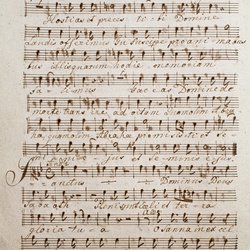 Hostias et preces ti bi Domine
laudis offerimus tu suscipe pro ani mabus
illis quarum hodie memoriam
faci mus fac eas Domine de
morte trans ire ad vitam Quam olim
Abrahae promi sisti et se
mini ejus et semini ejus.
Sanctus Dominus Deus
Sabaoth Pleni sunt coeli et ter ra
gloria tu a Osanna in excel